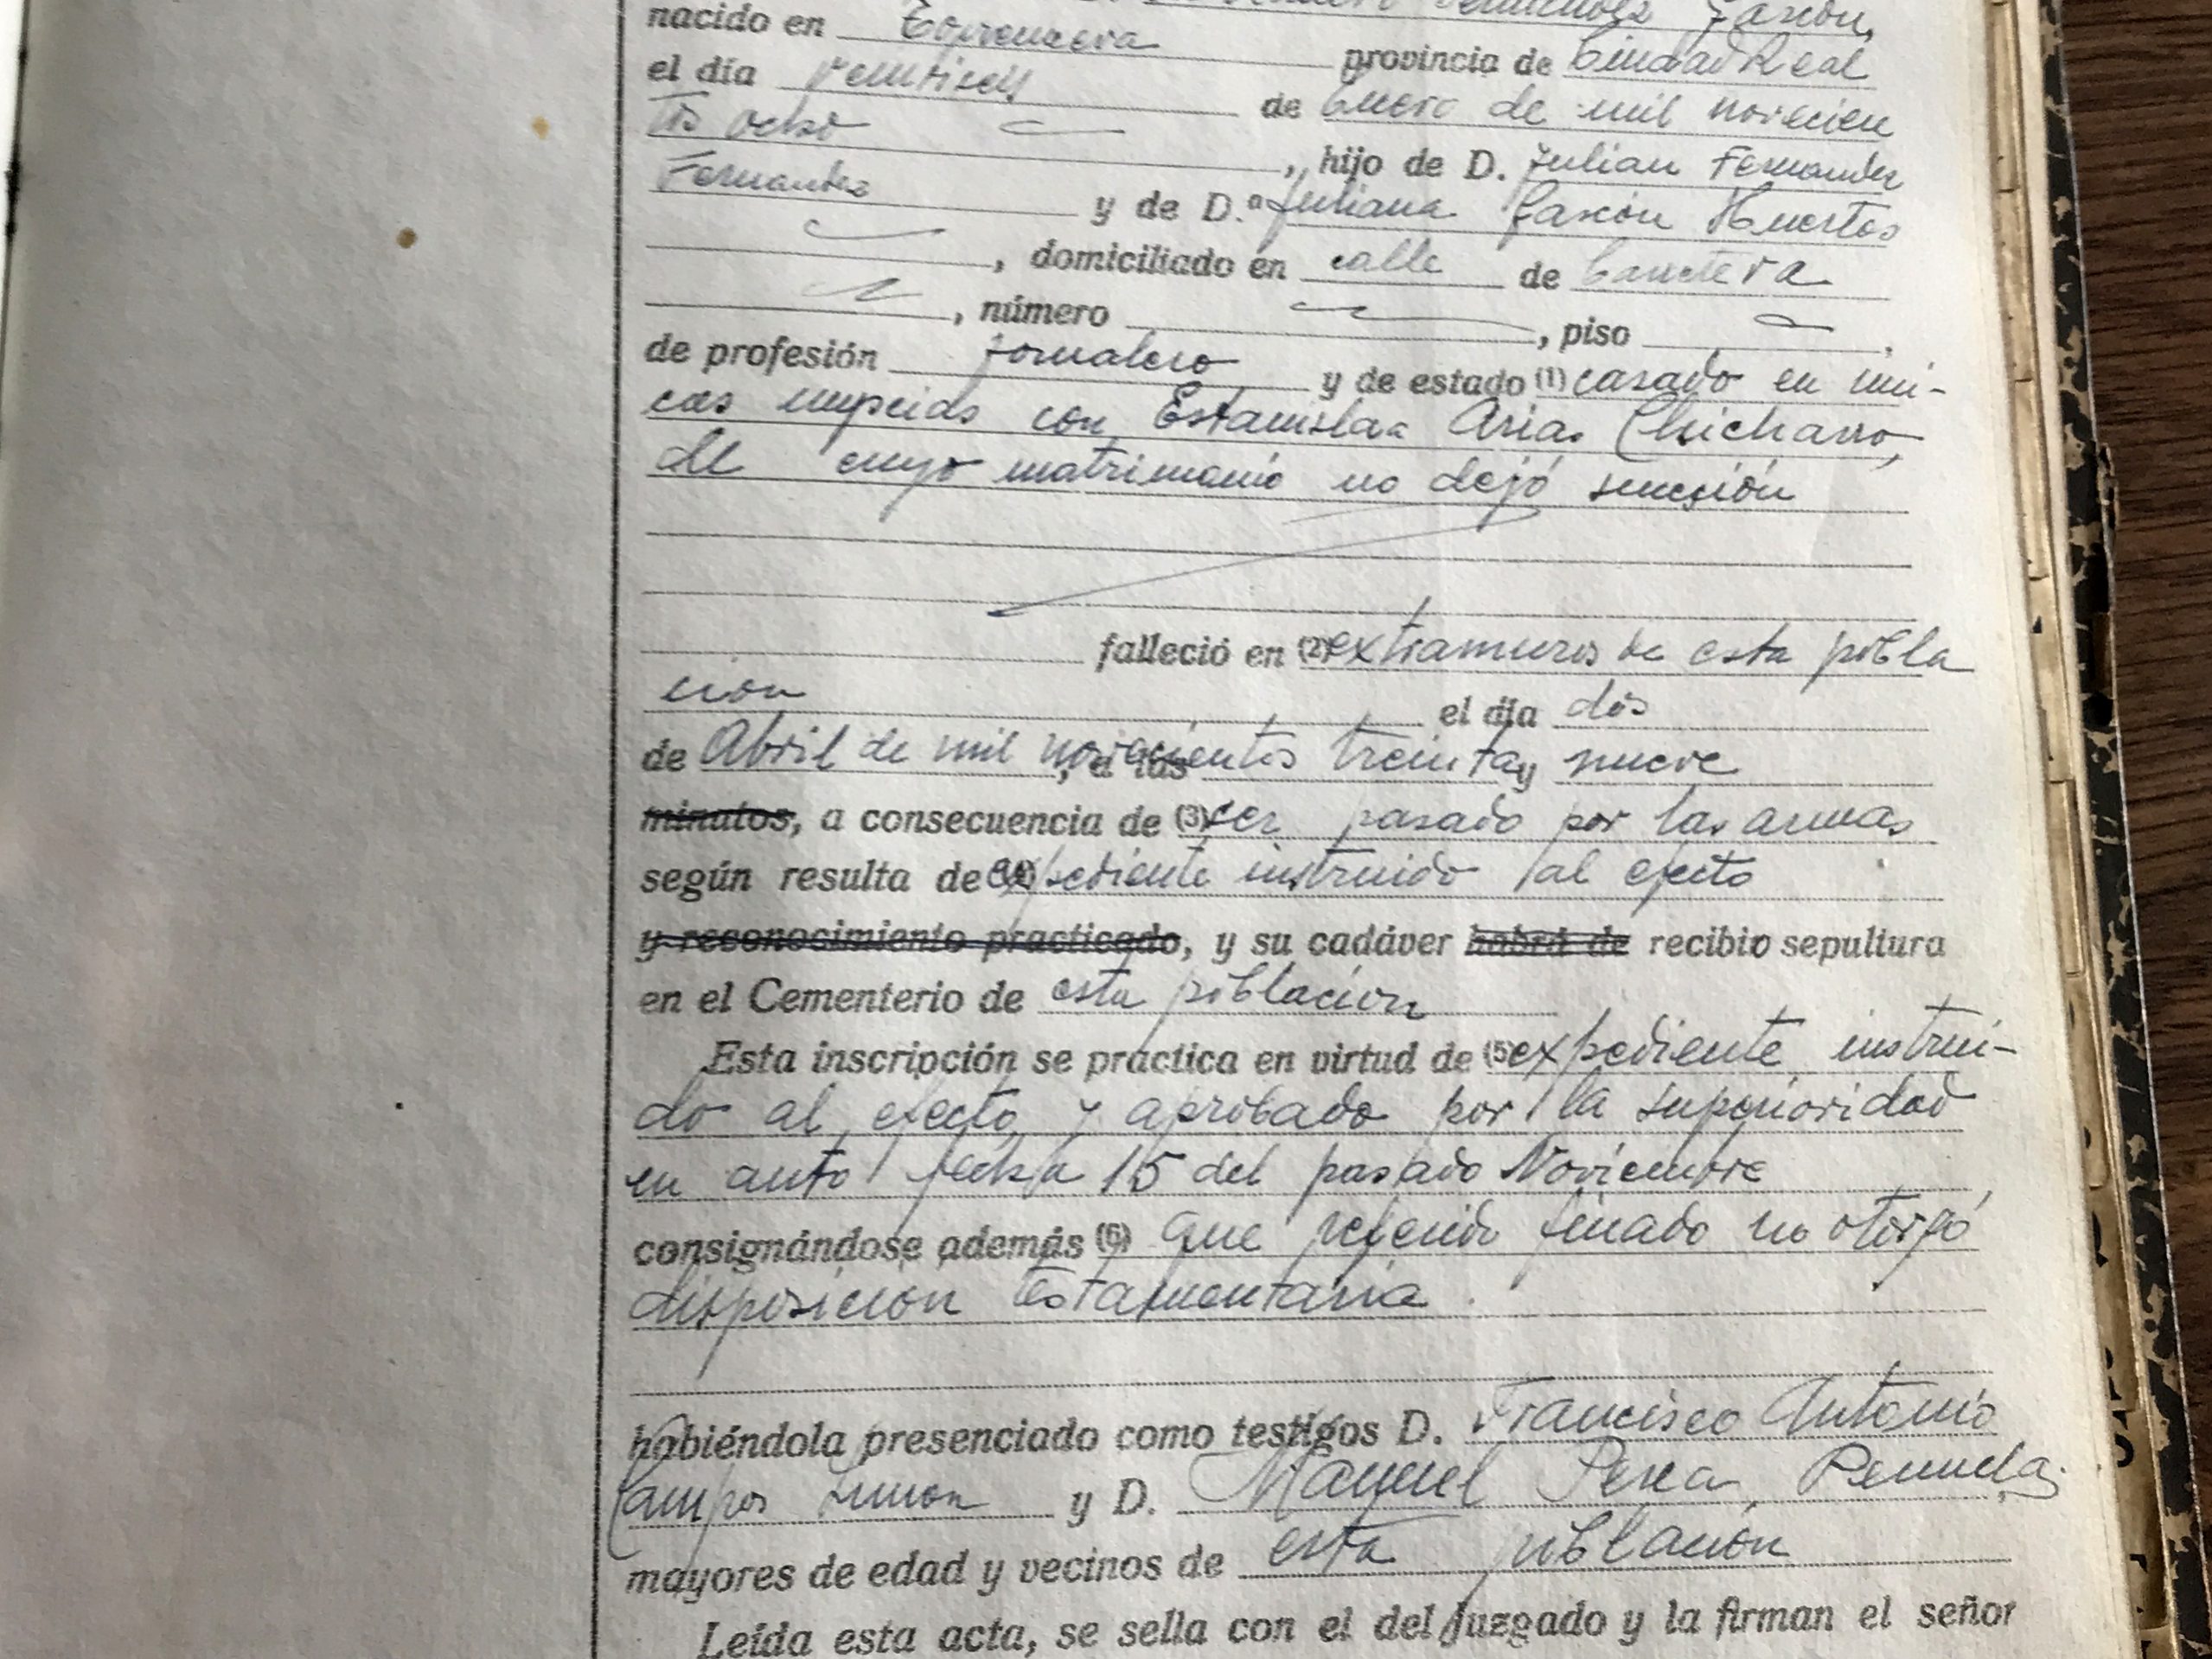 Fernández Gascón,
nacido en Torrenueva provincia de Ciudad Real
el día veintiseis de Enero de mil novecien
tos ocho , hijo de D. Julian Fernandez
Fernandez y de D.ª Juliana Gascón Huertos
, domiciliado en calle de Carretera
, número , piso ,
de profesión Jornalero y de estado (1) casado en úni-
cas nupcias con Estanislaa Arias Chicharro,
de cuyo matrimonio no dejó sucesión
falleció en (2) extramuros de esta pobla
cion el día dos
de Abril de mil novecientos treinta y nueve
, a las
minutos, a consecuencia de (3) ser pasado por las armas
según resulta de (4) expediente instruido al efecto
y reconocimiento practicado, y su cadáver habrá de recibio sepultura
en el Cementerio de esta poblacion
Esta inscripción se practica en virtud de (5) expediente instrui-
do al efecto y aprobado por la superioridad
en auto fecha 15 del pasado Noviembre
consignándose además (6) que referido finado no otorgó
disposicion testamentaria.
habiéndola presenciado como testigos D. Francisco Antonio
Campos Simon y D. Manuel Perea Penuela,
mayores de edad y vecinos de esta población
Leída esta acta, se sella con el del juzgado y la firman el señor